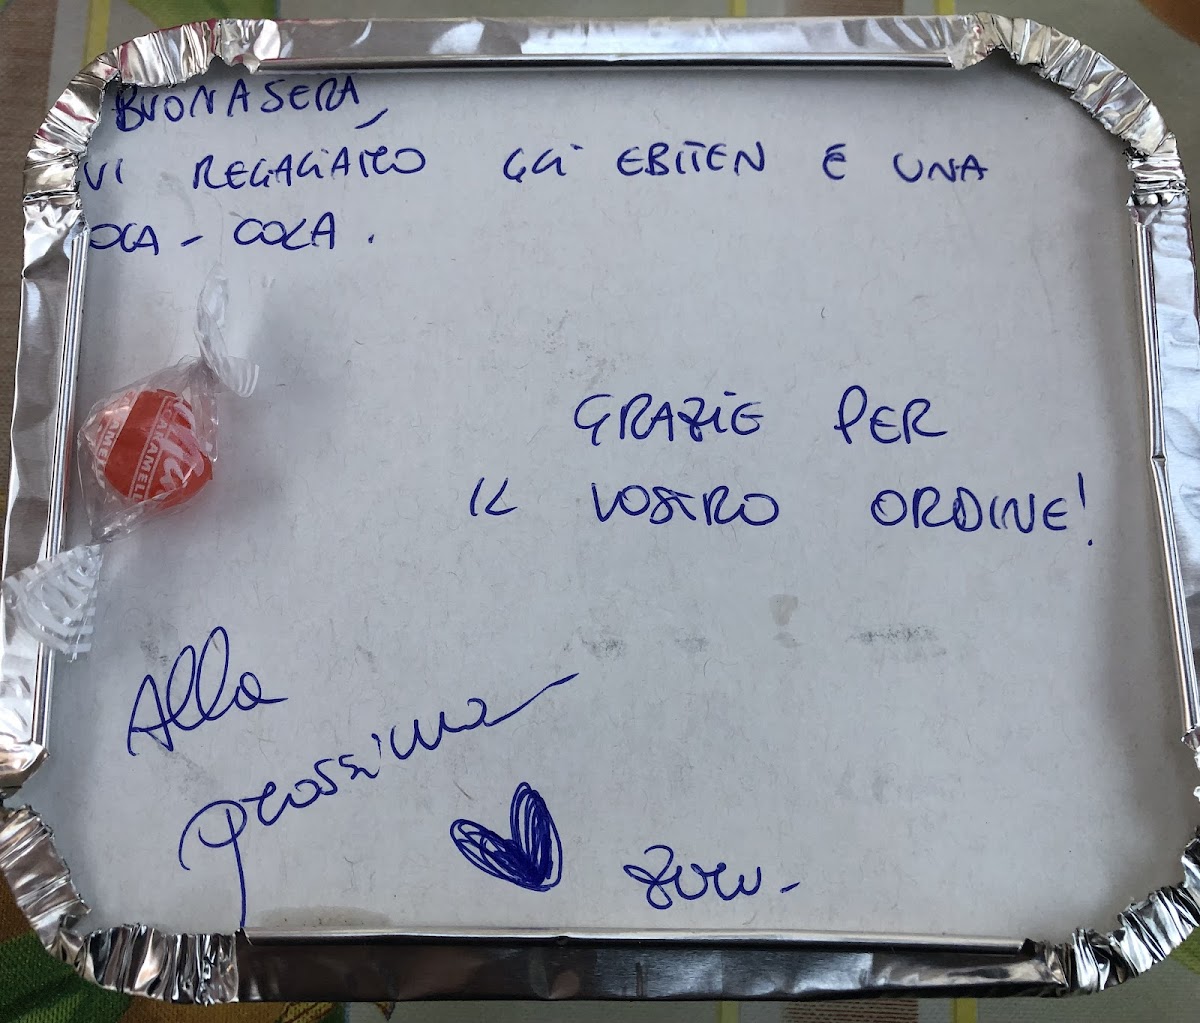 BUONASERA,
VI REGALIAMO GLI EBITEN E UNA
OCA - COLA.
GRAZIE PER
IL VOSTRO ORDINE!
Alla
prossima